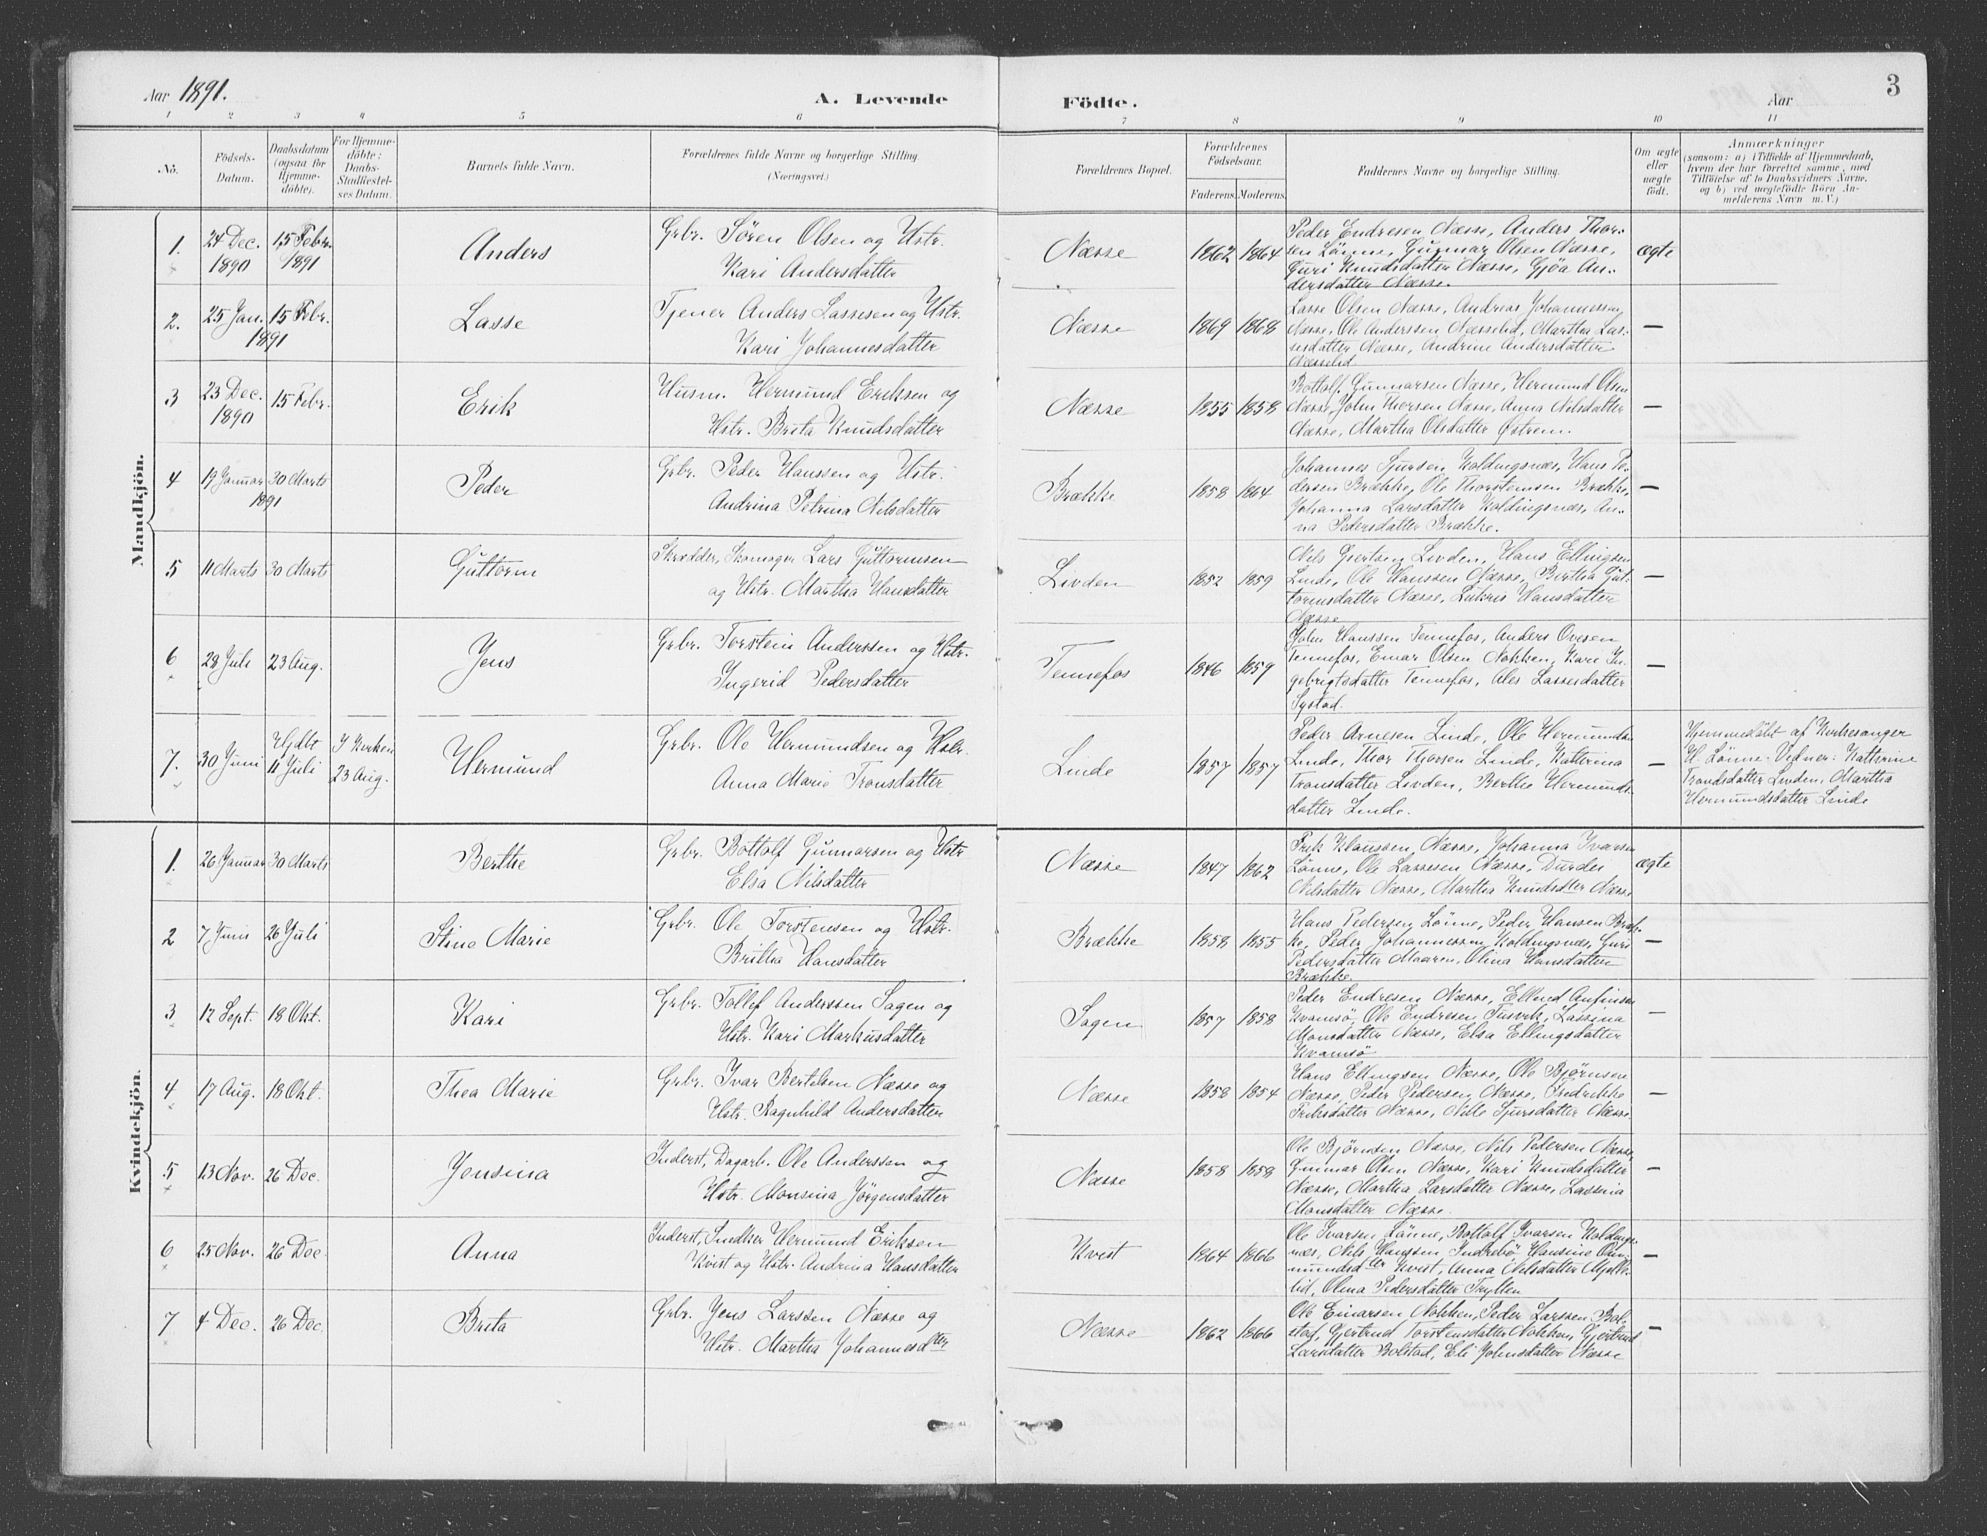 Aar 1891. A. Levende Födte. Aar 3
1 2 3 4 5 6 7 8 9 10 11
No.
Födsels-
Datum.
Daabsdatum
(ogsaa for
Hjemme-
döbte).
For Hjemme-
döbte:
Daabs-
Stadfæstel-
ses Datum.
Barnets fulde Navn.
Forældrenes fulde Navne og borgerlige Stilling.
(Næringsvei.)
Forældrenes Bopæl.
Forældrenes
Födselsaar.
Faderens. Moderens.
Faddernes Navne og borgerlige Stilling.
Om ægte
eller
uægte
födt.
Anmærkninger
(saasom: a) i Tilfælde af Hjemmedaab,
hvem der har forrettet samme, med
Tilföielse af to Daabsvidners Navne,
og b) ved uægtefödte Börn An-
melderens Navn m. V.)
Mandkjön.
1. 24 Dec. 1890
15 Febr. 1891
Anders
Grbr. Sören Olsen og Hstr.
Kari Andersdatter
Næsse 1862 1864
Peder Endresen Næsse, Anders Thor-
sen Lönne, Gunnar Olsen Næsse,
Guri Knudsdatter Næsse, Gjöa An-
dersdatter Næsse.
ægte
2. 25 Jan. 15 Febr.
1891
Lasse
Tjener Anders Lassesen og Hstr.
Kari Johannesdatter
Næsse 1869 1868
Lasse Olsen Næsse, Andreas Johannessen
Næsse, Ole Anderssen Næsselid, Martha Las-
sesdatter Næsse, Andrine Andersdatter
Næsselid
—
3 23 Dec. 1890
15 Febr.
Erik
Husm. Hermund Eriksen og
Hstr. Brita Knudsdatter
Næsse 1855 1858
Bottolf Gunnarsen Næsse, Hermund Olsen
Næsse, John Thorsen Næsse, Anna Nilsdatter
Næsse, Martha Olsdatter Østrem.
—
4 19 Januar 30 Marts
1891
Peder
Grbr. Peder Hanssen og Hstr.
Andrina Petrina Nilsdatter
Brække 1858 1864
Johannes Sjursen Koldingsnæs, Hans Pe-
dersen Brække, Ole Thorstensen Brække,
Johanna Larsdatter Koldingsnæs, An-
na Pedersdatter Brække.
—
5 11 Marts 30 Marts
Guttorm
Skrædder, Skomager Lars Guttormsen
og Hstr. Martha Hansdatter
Livden 1852 1859
Nils Livden, Hans Ellingsen
Linde, Ole Hanssen Næsse, Bertha Gut-
tormsdatter Næsse, Lukris Hansdatter
Næsse
—
6 28 Juli 23 Aug.
Jens
Grbr. Torstein Anderssen og Hstr.
Ingerid Pedersdatter
Tennefos 1846 1859
John Hanssen Tennefos, Anders Ovesen
Tennefos, Einar Olsen Nokken, Kari In-
gebrigtsdatter Tennefos, Lassesdatter
Systad.
—
7. 30 Juni
Hjdbt
11 Juli
I Kirken
23 Aug.
Hermund
Grbr. Ole Hermundsen og Hstr.
Anna Marie Tronsdatter
Linde 1857 1857
Peder Arnesen Linde, Ole Hermunds.
Linde, Thor Thorsen Linde, Katterina
Tronsdatter Livden, Berthe Hermunds-
datter Linde.
—
Hjemmedöbt af Kirkesanger
H. Lönne. Vidner: Kathrine
Trondsdatter Livden, Martha
Hermundsdatter Linde
Kvindekjön.
1. 26 Januar 30 Marts
Berthe
Grbr. Bottolf Gunnarsen og Hstr
Elsa Nilsdatter
Næsse 1847 1862
Erik Klaussen, Næsse, Johanna Ivarsen
Lönne, Ole Lassesen Næsse, Durdei
Nilsdatter Næsse, Martha Knudsdtter Næsse
ægte
2 7 Juni 26 Juli
Stina Marie
Grbr. Ole Torstensen og Hstr.
Britha Hansdatter
Brække 1858 1855
Hans Pedersen Lönne, Peder Hansen Bræk-
ke, Peder Johannessen Koldingsnæs, Guri
Pedersdatter Maaren, Olina Hansdatter
Brække
—
3 12 Sept. 18 Okt.
Kari
Grbr. Tollef Anderssen Sagen og
Hstr. Kari Markusdatter
Sagen 1857 1858
Peder Endresen Næsse, Ellend Anfinsen
Kvamsö, Ole Endresen Tusvik, Lassina
Monsdatter Næsse, Elsa Ellingsdatter
Kvamsö
—
4 17 Aug. 18 Okt.
Thea Marie
Grbr. Ivar Bertelsen Næsse og
Hstr. Ragnhild Andersdatter
Næsse 1858 1854
Hans Ellingsen Næsse, Ole Björnsen
Næsse, Peder Pedersen Næsse, Fredrikke
Eriksdatter Næsse, Nille Sjursdatter Næsse
—
5 13 Nov. 26 Dec.
Jensina
Inderst, Dagarb. Ole Anderssen og
Hstr. Monsina Jörgensdatter
Næsse 1858 1858
Ole Björnsen Næsse, Nils Pedersen Næsse,
Gunnar Olsen Næsse, Kari Knudsdatter
Næsse, Martha Larsdatter Næsse, Lassina
Monsdatter Næsse.
—
6 25 Nov. 26 Dec.
Anna
Inderst, Snedker Hermund Eriksen
Kvist og Hstr. Andrina Hansdatter
Kvist 1864 1866
Ole Ivarsen Lönne, Bottolf Ivarsen Koldings-
næs, Nils Hanssen Indrebö, Hansine
Kvist, Anna Nilsdatter
lid, Olina Pedersdatter Trytten
—
7 4 Dec. 26 Dec.
Brita
Grbr. Jens Larssen Næsse og
Hstr. Martha Johannesdtter
Næsse 1862 1866
Ole Einarsen Nokken, Peder Larssen Bol-
stad, Gjertrud Torstensdatter Nokken, Gjertrud
Larsdatter Bolstad, Eli Johnsdatter Næsse
—